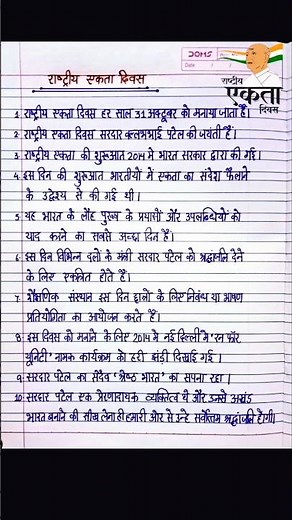 DOMS
Date
राष्ट्रीय एकता दिवस
राष्ट्रीय
एकता
दिवस
1. राष्ट्रीय एकता दिवस हर साल 31 अक्टूबर को मनाया जाता है।
2. राष्ट्रीय एकता दिवस सरदार वल्लभभाई पटेल की जयंती है।
3. राष्ट्रीय एकता की शुरूआत 2014 में भारत सरकार द्वारा की गई।
4. इस दिन की शुरूआत भारतीयों में एकता का संदेश फैलाने
के उद्देश्य से की गई थी।
5. यह भारत के लौह पुरुष के प्रयासों और उपलब्धियों को
याद करने का सबसे अच्छा दिन है।
6. इस दिन विभिन्न दलों के मंत्री सरदार पटेल को श्रद्धांजलि देने
के लिए एकत्रित होते हैं।
7. शैक्षणिक संस्थान इस दिन छात्रों के लिए निबंध या भाषण
प्रतियोगिता का आयोजन करते हैं।
8. इस दिवस को मनाने के लिए 2014 में नई दिल्ली में 'रन फॉर
यूनिटी' नामक कार्यक्रम को हरी झंडी दिखाई गई।
9. सरदार पटेल का सदैव 'श्रेष्ठ भारत' का सपना रहा।
10. सरदार पटेल एक प्रेरणादायक व्यक्तित्व थे और उनसे अखंड
भारत बनाने की सीख लेना ही हमारी और से उन्हे सर्वोत्तम श्रद्धांजलि होगी।